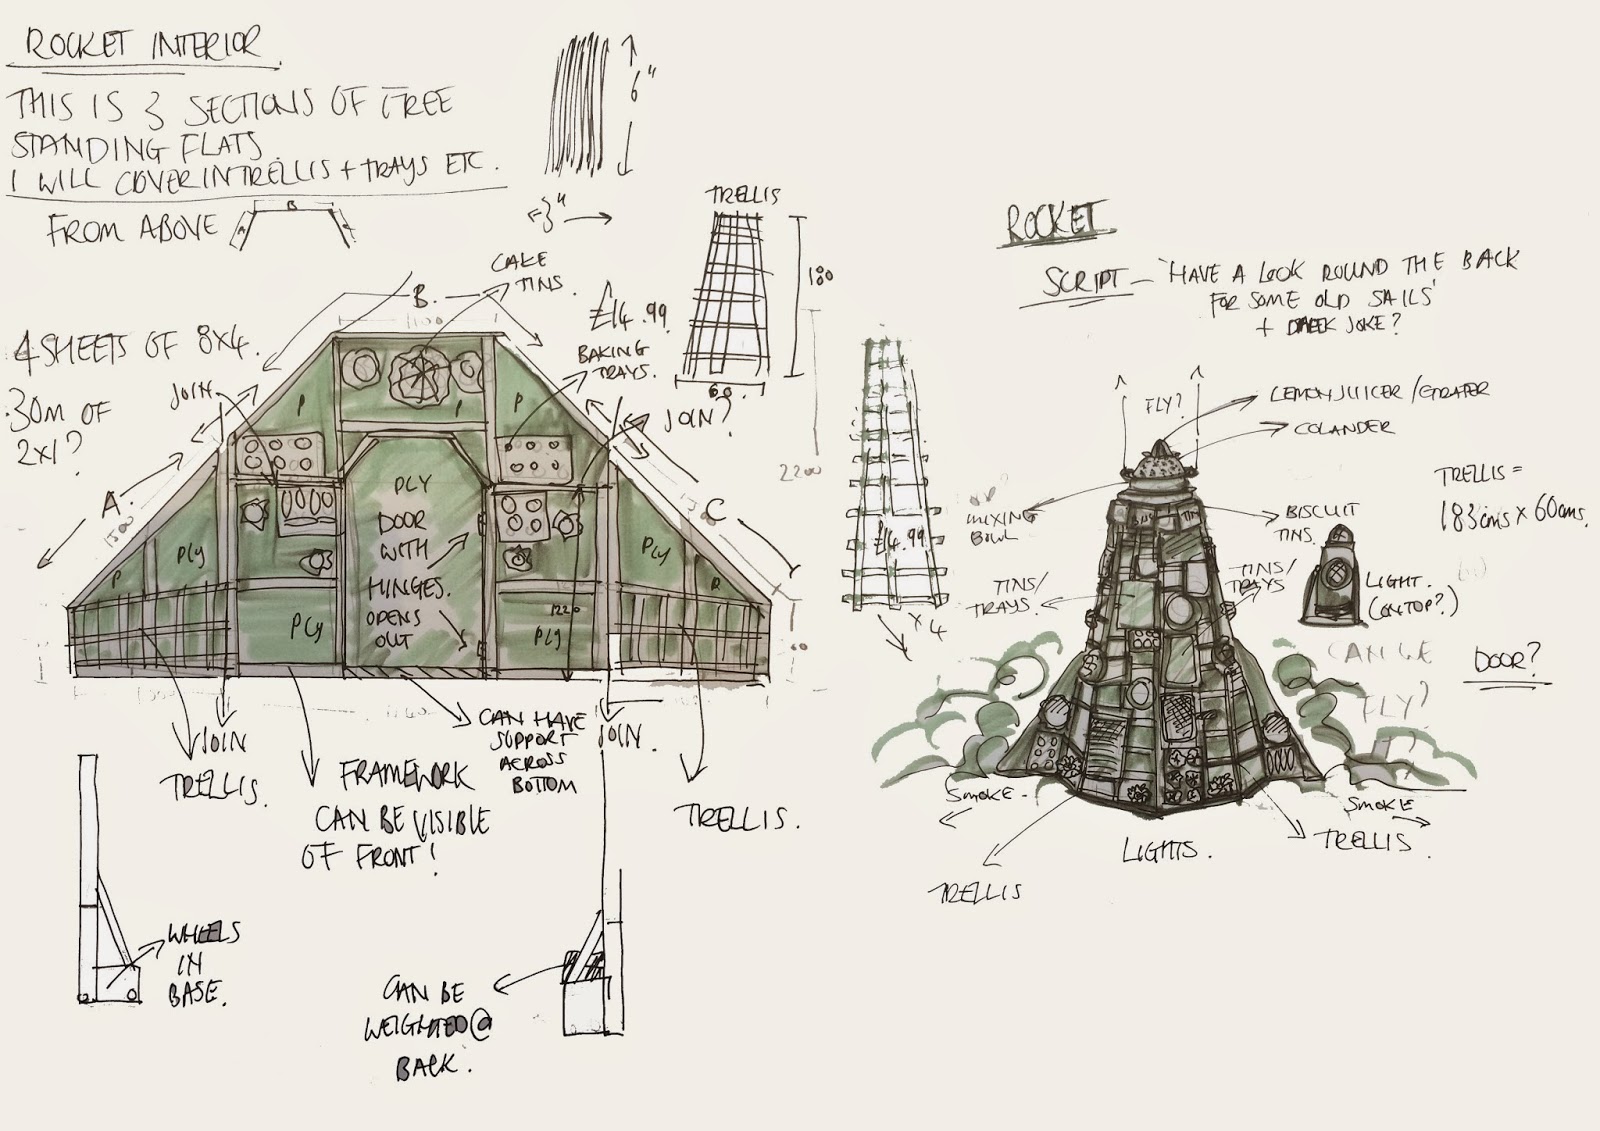 ROCKET INTERIOR
THIS IS 3 SECTIONS OF FREE
STANDING FLATS.
I WILL COVER IN TRELLIS + TRAYS ETC.
FROM ABOVE
A
B
6"
3"
TRELLIS
180
60.
£14.99
CAKE
TINS.
BAKING
TRAYS.
B.
1100
4 SHEETS OF 8X4.
30M OF
2X1?
JOIN
JOIN?
A.
C
2200
P
P
P
PLY
PLY
PLY
PLY
P
PLY
DOOR
WITH
HINGES.
OPENS
OUT
1220
JOIN
TRELLIS.
FRAMEWORK
CAN BE VISIBLE
OF FRONT!
CAN HAVE
SUPPORT
ACROSS
BOTTOM
JOIN.
TRELLIS.
WHEELS
IN
BASE.
CAN BE
WEIGHTED @
BACK.
ROCKET
SCRIPT - 'HAVE A LOOK ROUND THE BACK
FOR SOME OLD SAILS'
+ DALEK JOKE?
FLY?
LEMON JUICER / GRATER
COLANDER
MIXING
BOWL
£14.99
X 4
BISCUIT
TINS.
TINS/
TRAYS.
TINS/
TRAYS
TIN
TRELLIS =
183cms X 60cms.
LIGHT.
(ON TOP?)
CAN WE
FLY?
DOOR?
SMOKE.
SMOKE
LIGHTS.
TRELLIS.
TRELLIS